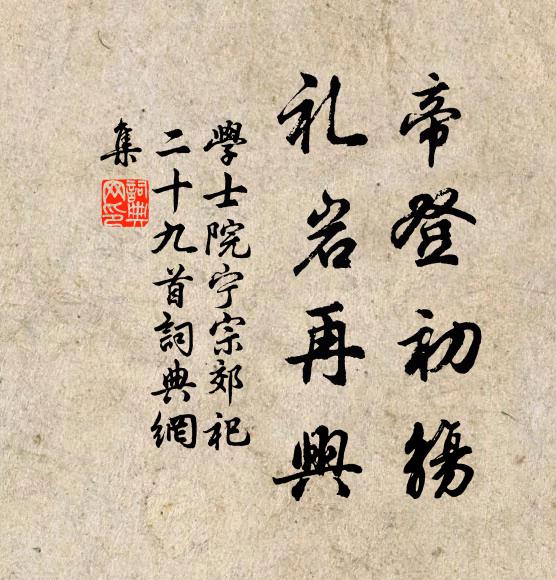 帝登初觴
礼岩再興
學士院宁宗郊祀
二十九首詞典網
集
詞典网印